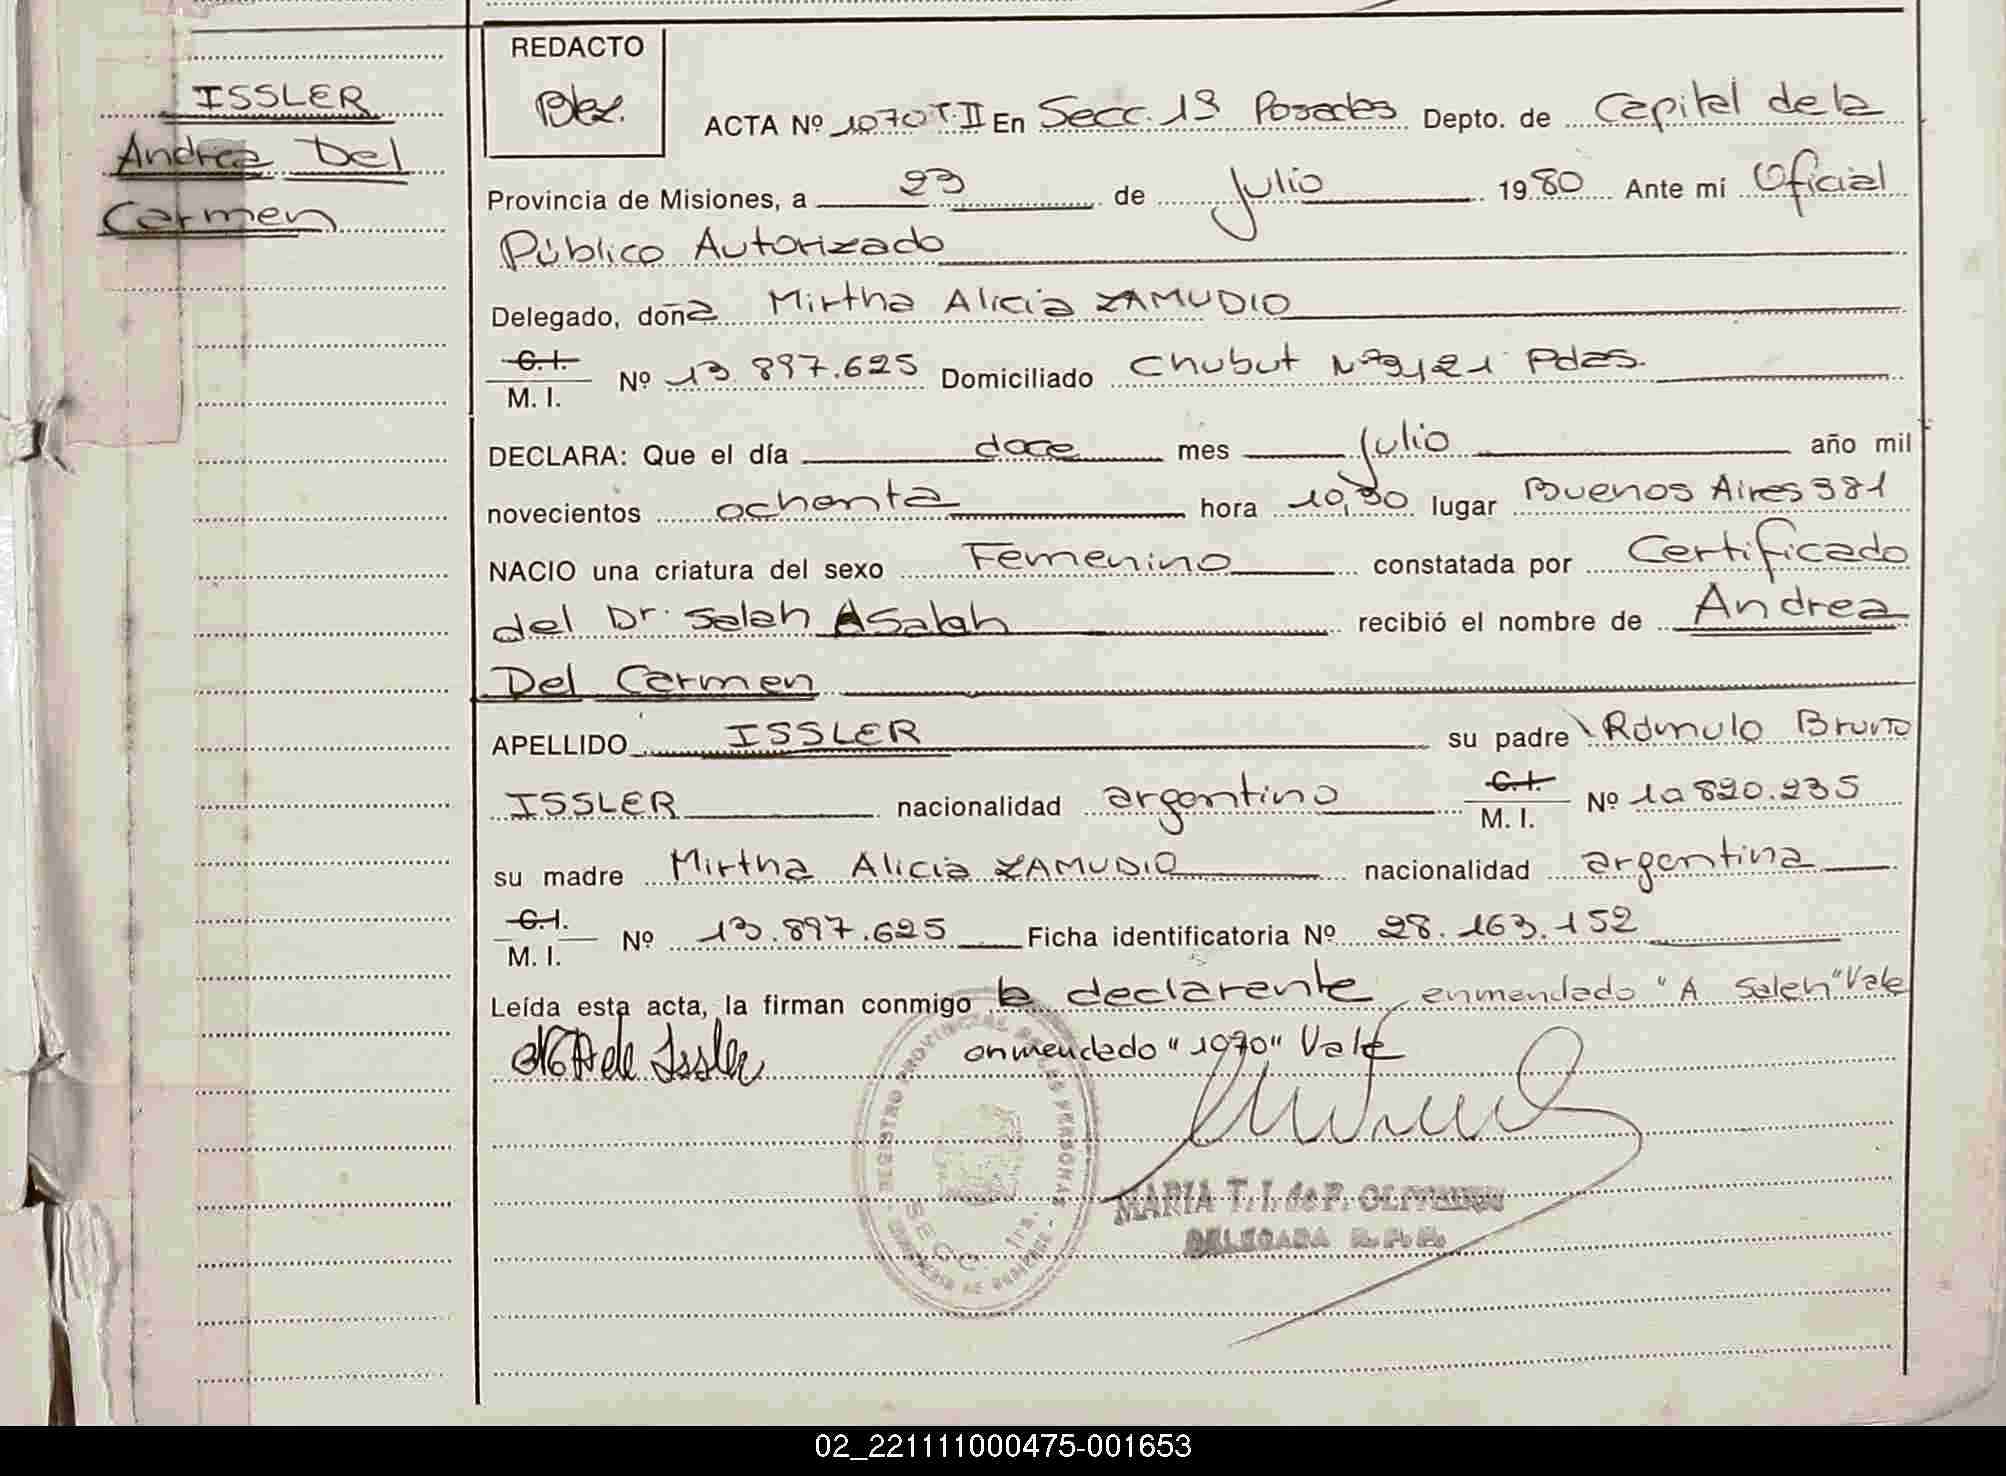 ISSLER
Andrea Del
Carmen
REDACTO
ACTA Nº 1070 T.II En Secc. 13 Posadas Depto. de Capital de la
Provincia de Misiones, a 23 de Julio 1980 Ante mí Oficial
Público Autorizado
Delegado, doña Mirtha Alicia ZAMUDIO
C.I.
M. I. Nº 13.897.625 Domiciliado Chubut Nº 3121 Pdas.
DECLARA: Que el día doce mes Julio año mil
novecientos ochenta hora 10,30 lugar Buenos Aires 381
NACIO una criatura del sexo Femenino constatada por Certificado
del Dr. Salah A Salah recibió el nombre de Andrea
Del Carmen
APELLIDO ISSLER su padre Rómulo Bruno
ISSLER nacionalidad argentino C.I. M. I. Nº 10.820.235
su madre Mirtha Alicia ZAMUDIO nacionalidad argentina
C.I.
M. I. Nº 13.897.625 Ficha identificatoria Nº 28.163.152
Leída esta acta, la firman conmigo la declarante enmendado "A Saleh" Vale
de Issler enmendado "1070" Vale
REGISTRO PROVINCIAL DE LAS PERSONAS
SECC.
MARIA T. I. de P.
DELEGADA R. P. P.
02_221111000475-001653